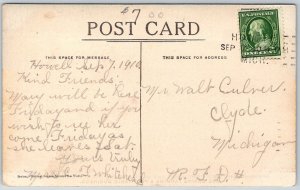 $7.00
POST CARD
THIS SPACE FOR MESSAGE
THIS SPACE FOR ADDRESS
SEP
MICH.
Howell Sep 7, 1910
Kind Friends:
Mary will be here
Friday and if you
wish to see her
come Friday as
she leaves Sat.
Yours truly
Whitehead
Mr Walt Culver
Clyde
Michigan
R. F. D. #